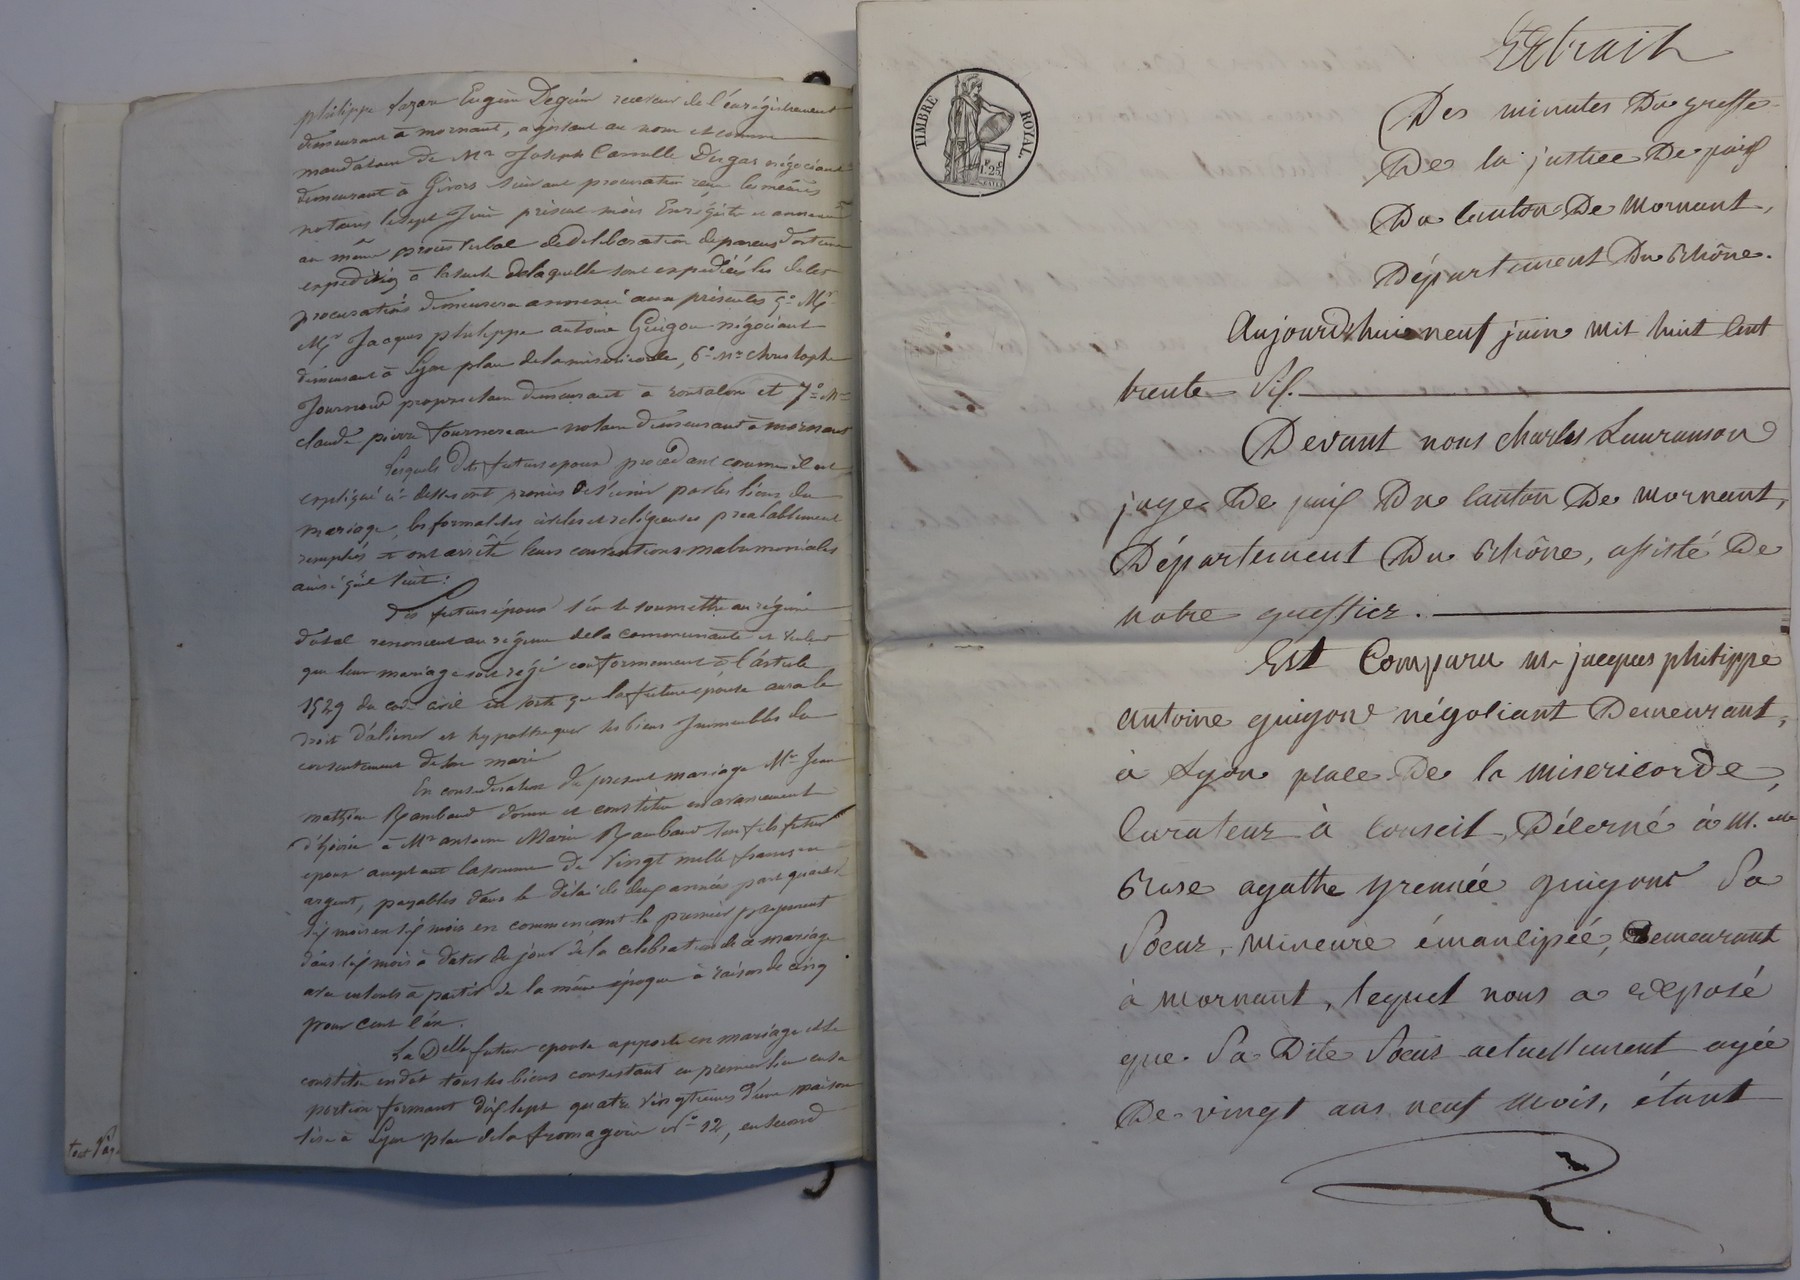 philippe lazare Eugène Deguin receveur de l'enrégistrement
demeurant à mornant, agissant au nom et comme
mandataire de Mr Joseph Camille Dugas négociant
demeurant à Givors suivant procuration reçue les mêmes
notaires le sept Juin présent mois Enrégistré et annexée
au même procès verbal de délibération de parens dont une
expédition à la suite de laquelle sont expédiées les dites
procurations demeurera annexée aux présentes 5º Mr
Mr Jacques philippe antoine Guigou négociant
demeurant à Lyon place de la miséricorde, 6º Mr christophe
Journoud propriétaire demeurant à rontalon et 7º Mr
claude pierre fournereau notaire demeurant à mornant
Lesquels dits futurs epoux procédant comme il est
expliqué ci-dessus ont promis de s'unir par les liens du
mariage, les formalités civiles et religieuses préalablement
remplies et ont arrêté leurs conventions matrimoniales
ainsi qu'il suit:
Les futurs époux sans se soumettre au régime
dotal renoncent au régime de la communauté et veulent
que leur mariage soit régi conformément à l'article
1529 du code civil en sorte que la future épouse aura le
droit d'aliéner et hypothequer ses biens Immeubles du
consentement de son mari
En considération du present mariage Mr Jean
mathieu Rambaud donne et constitue en avancement
d'hoirie à Mr antoine Marie Rambaud son fils futur
epoux acceptant la somme de vingt mille francs en
argent, payables dans le délai de deux années par quart de
six mois en six mois en commençant le premier payement
dans six mois à dater du jour de la célébration de ce mariage
avec intérêts à partir de la même époque à raison de cinq
pour cent l'an.
La Delle future epouse apporte en mariage et se
constitue en dot tous ses biens consistant en premier lieu en sa
portion formant dix sept quatre vingtièmes d'une maison
sise à Lyon place de la fromagerie nº 12, en second
tout
Extrait
TIMBRE ROYAL.
1.25
Des minutes Du greffe
De la justice De paix
Du Canton De Mornant,
Département Du Rhône.
Aujourd'hui neuf juin mil huit Cent
trente Six.
Devant nous charles Lauranson
juge De paix Du Canton De Mornant,
Département Du Rhône, assisté De
notre greffier.
Est Comparu mr jacques philippe
Antoine guigou négociant Demeurant,
à Lyon place De la Misericorde,
Curateur à Conseil, Décerné à M.elle
Rose agathe yrennée guigou Sa
Soeur, Mineure émancipée, Demeurant
à Mornant, lequel nous a exposé
que Sa Dite Soeur actuellement agée
De vingt ans neuf Mois, étant